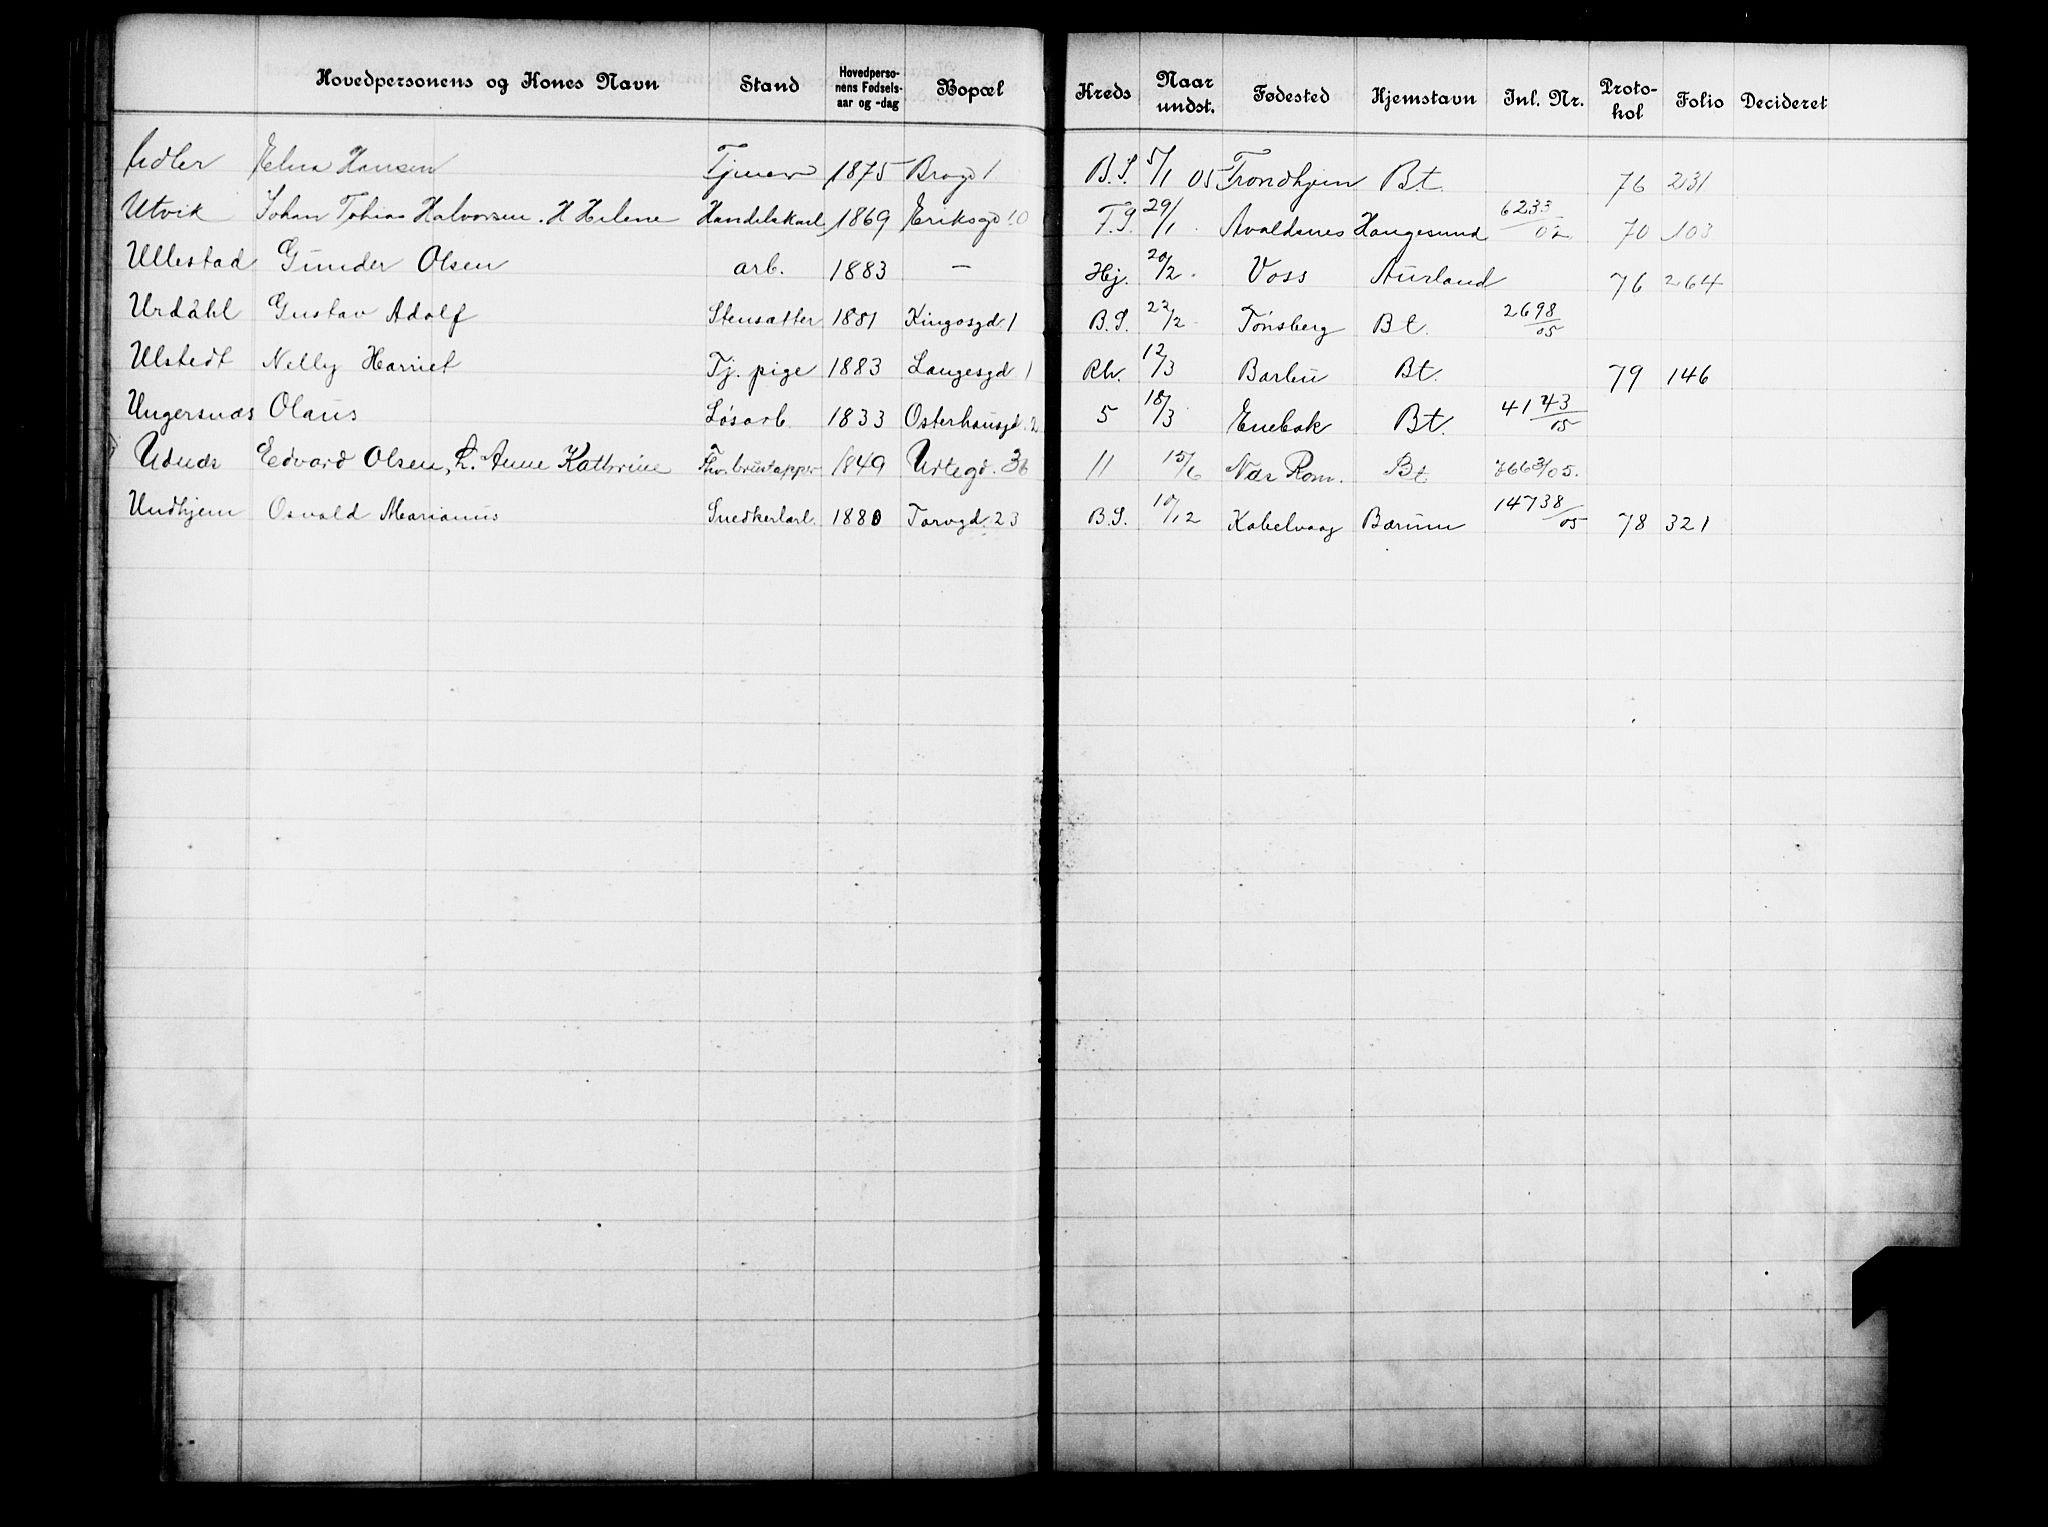 Hovedpersonens og Kones Navn Stand Hovedpersonens Fødselsaar og -dag Bopæl Kreds Naar undst. Fødested Hjemstavn Inl. Nr. Protokol Folio Decideret
Elna Hansen 1875 Brogd 1 B.S. 5/1 05 Trondhjem Bt. 76 231
Utvik Johan Tobias Halvorsen. H Helene Handelskarl 1869 Eriksgd 10 T.G. 29/1 Avaldsnes Haugesund 6233/02 70 103
Ullestad Gunder Olsen arb. 1883 — Hj. 20/2 Voss Aurland 76 264
Urdahl Gustav Adolf Stensætter 1881 Kingosgd 1 B.S. 22/2 Tønsberg Bt. 2698/05
Ulstedt Nelly Harriet Tj. pige 1883 Langesgd 1 Rh. 12/3 Barbu Bt. 79 146
Ungersnæs Olaus Løsarb. 1833 Osterhausgd. 2 5 18/3 Enebak Bt. 4143/05
Udnæs Edvard Olsen, h. Anne Kathrine 1849 Urtegd. 36 11 15/6 Næs Rom. Bt 7663/05.
Undhjem Osvald Marianus Snedkerlærl. 1880 Torvgd. 23 B.S. 10/12 Kabelvaag Bærum 14738/05 78 321